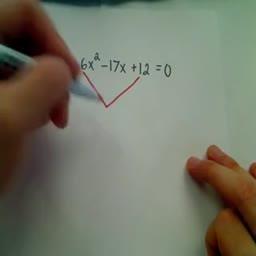 6x²-17x+12=0